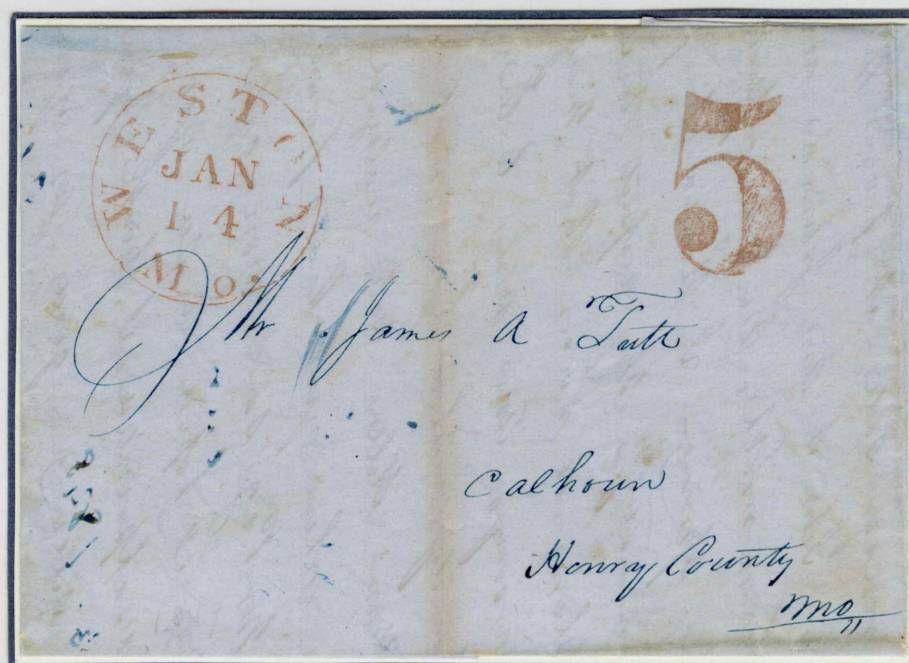 WESTON
JAN
14
Mo.
5
Mr James A Tutt
Calhoun
Henry County
Mo